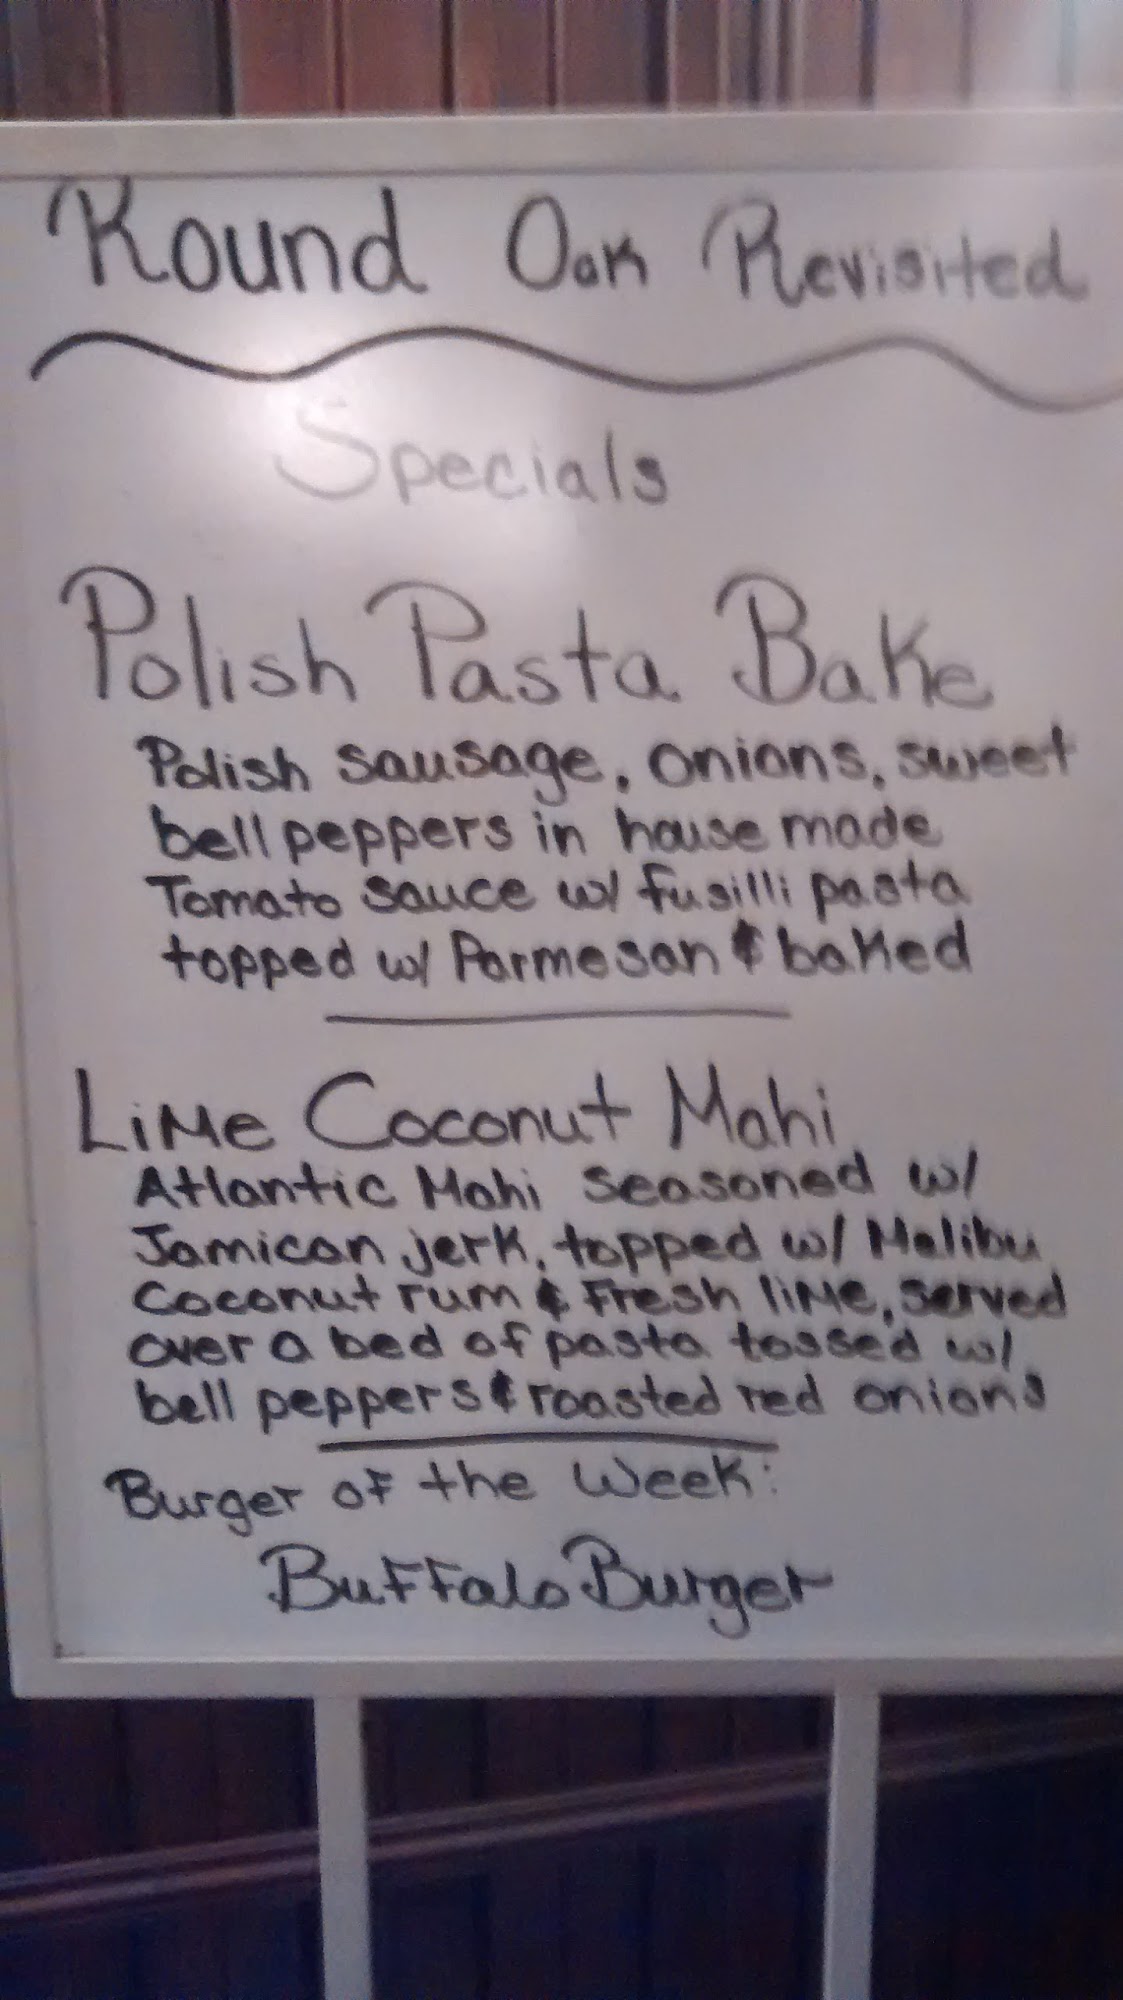 Round Oak Revisited
Specials
Polish Pasta Bake
Polish sausage, onions, sweet
bell peppers in house made
Tomato sauce w/ fusilli pasta
topped w/ Parmesan & baked
Lime Coconut Mahi
Atlantic Mahi seasoned w/
Jamican jerk, topped w/ Malibu
Coconut rum & Fresh lime, served
over a bed of pasta tossed w/
bell peppers & roasted red onions
Burger of the Week:
Buffalo Burger